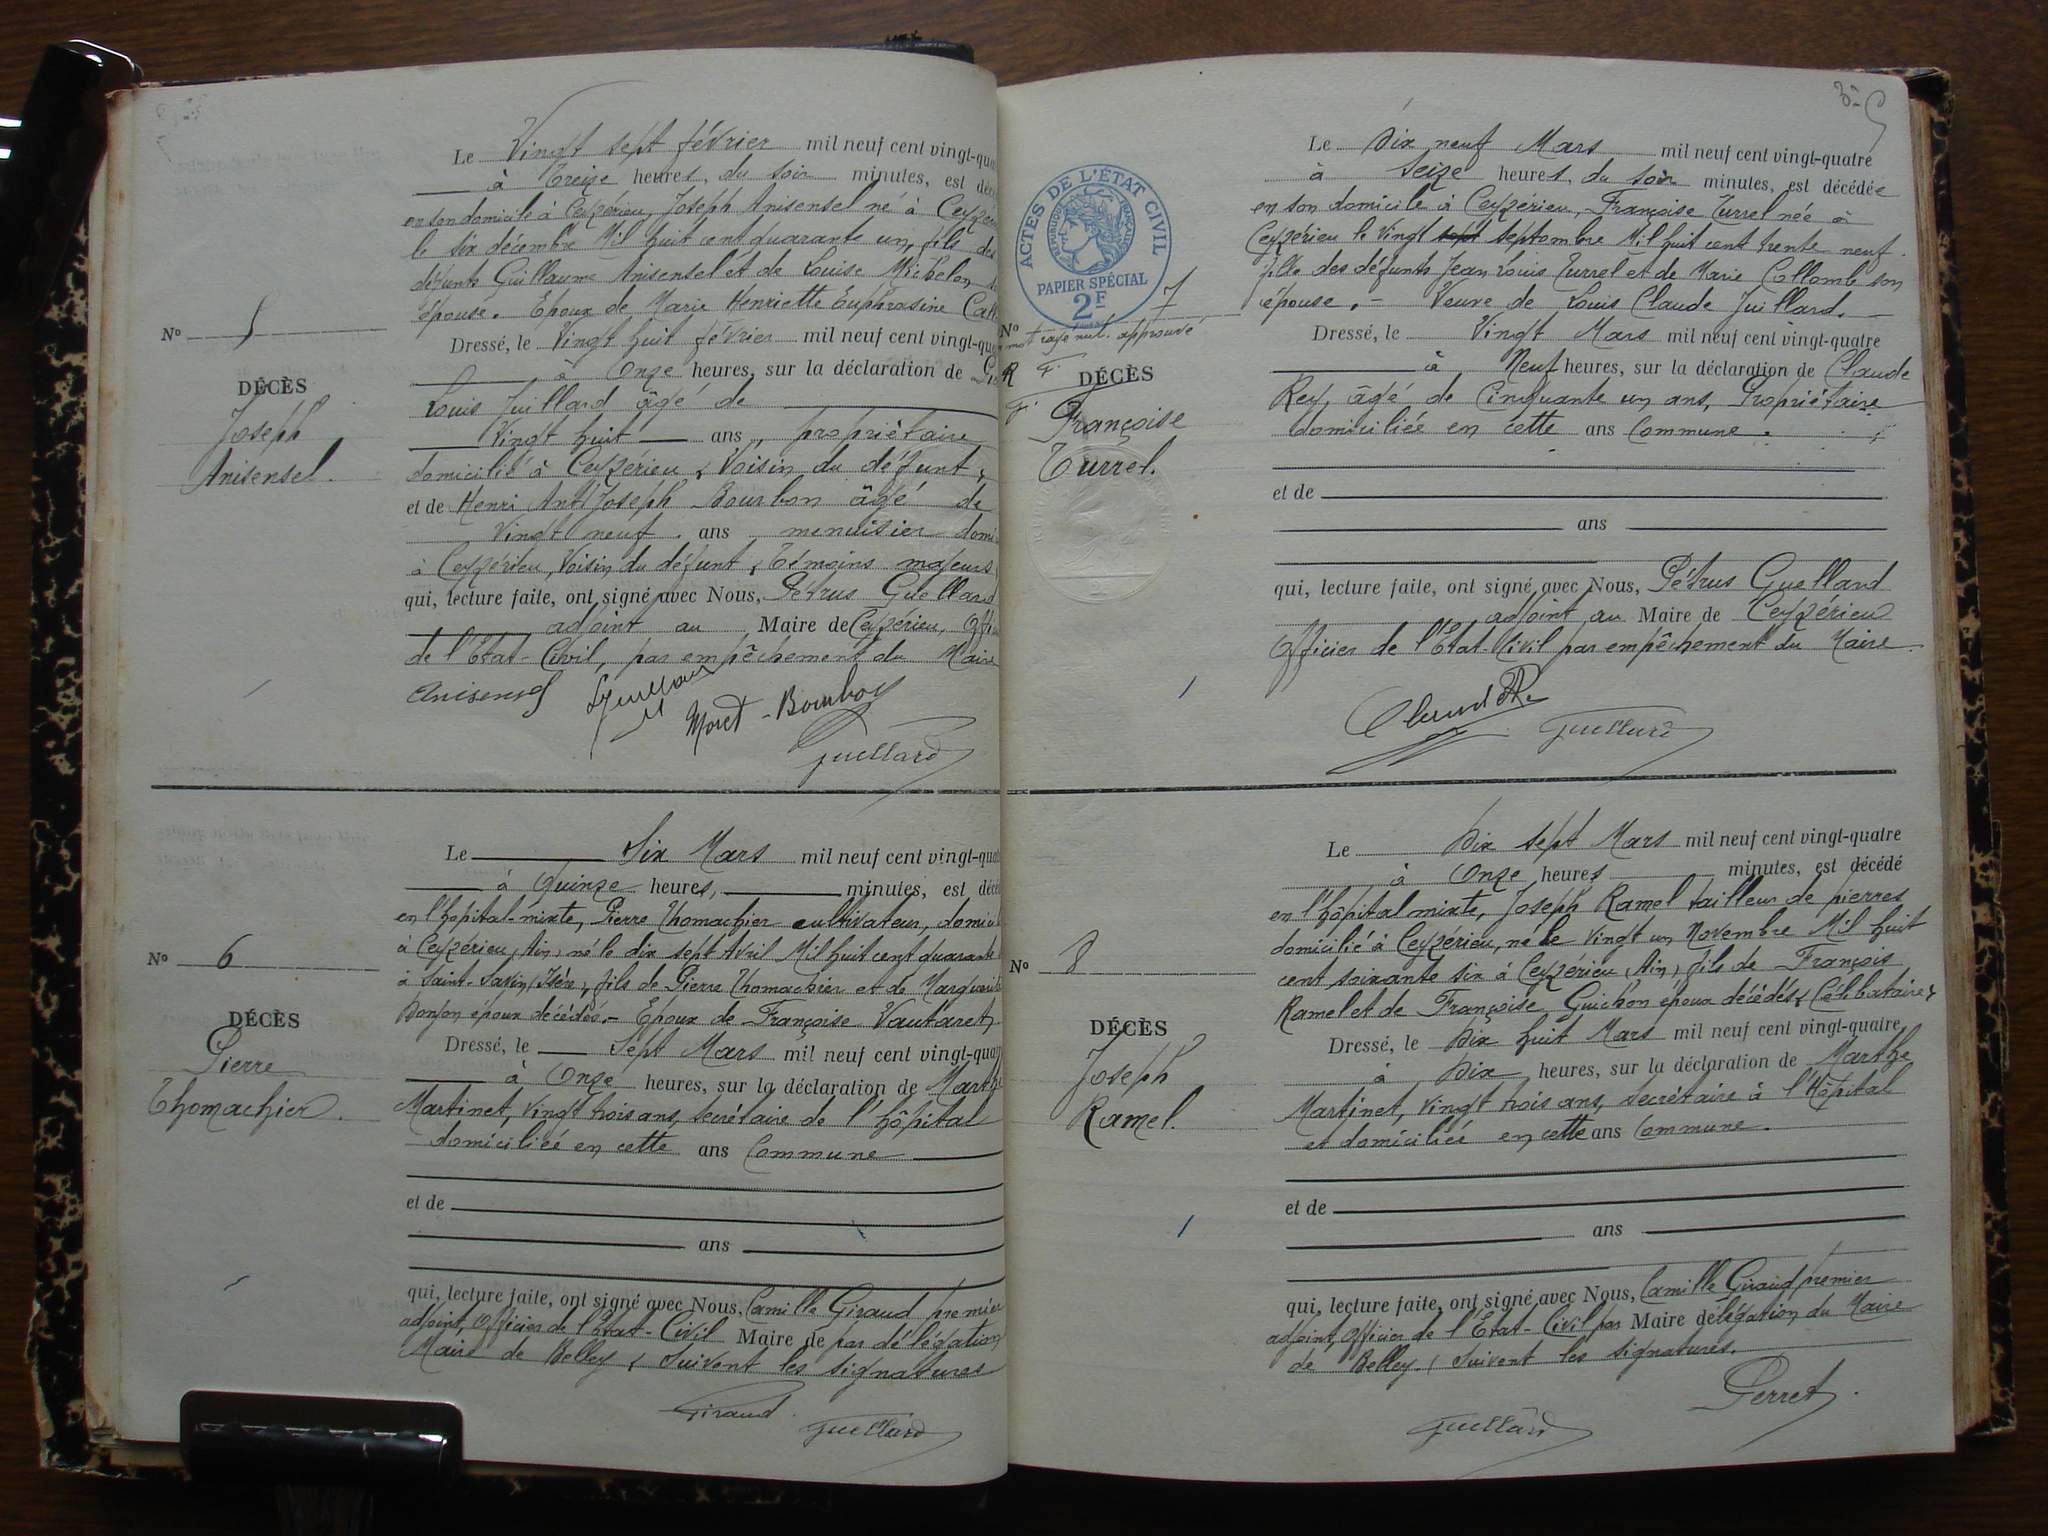 Le Vingt sept février mil neuf cent vingt-qua
à Treize heures, du soir minutes, est décé
en son domicile à Ceyzérieu, Joseph Anisensel né à Ceyzéri
le six décembre Mil huit cent quarante un, fils des
défunts Guillaume Anisensel et de Louise Michelon
épouse. Epoux de Marie Henriette Euphrasine
N° 5
Dressé, le Vingt huit février mil neuf cent vingt-qua
à Onze heures, sur la déclaration de
DÉCÈS
Joseph
Anisensel.
Louis Juillard âgé de
Vingt huit ans, propriétaire
domicilié à Ceyzérieu, Voisin du défunt,
et de Henri Anth Joseph Bourbon âgé de
Vingt neuf ans menuisier domi
à Ceyzérieu, Voisin du défunt, témoins majeurs
qui, lecture faite, ont signé avec Nous, Pétrus Guelland
adjoint au Maire de Ceyzérieu, Offi
de l'Etat-Civil, par empêchement du Maire
Anisensel Moret-Bourbon
Guellard
Le Six Mars mil neuf cent vingt-quat
à Quinze heures, minutes, est décé
en l'hôpital-mixte, Pierre Thomachier cultivateur, domici
à Ceyzérieu, Ain, né le dix sept Avril Mil huit cent quarante
N° 6
à Saint-Savin (Isère), fils de Pierre Thomachier et de Marguerite
Donjon époux décédés.- Epoux de Françoise Vautaret
DÉCÈS
Pierre
Thomachier.
Dressé, le Sept Mars mil neuf cent vingt-qua
à Onze heures, sur la déclaration de Marthe
Martinet, vingt trois ans, secrétaire de l'hôpital
domiciliée en cette ans Commune
et de
ans
qui, lecture faite, ont signé avec Nous, Camille Giraud premier
adjoint, Officier de l'Etat-Civil Maire de par délégation
Maire de Belley, Suivent les signatures
Giraud
Guellard
3
Le Dix neuf Mars mil neuf cent vingt-quatre
à Seize heures, du soir minutes, est décédée
en son domicile à Ceyzérieu, Françoise Turrel née à
Ceyzérieu le Vingt sept septembre Mil huit cent trente neuf
fille des défunts Jean Louis Turrel et de Marie Collomb son
épouse.- Veuve de Louis Claude Juillard.
ACTES DE L'ÉTAT CIVIL
RÉPUBLIQUE FRANÇAISE
PAPIER SPÉCIAL
2F
N° 7
mot rayé nul. approuvé
R G
G.
Dressé, le Vingt Mars mil neuf cent vingt-quatre
à Neuf heures, sur la déclaration de Claude
DÉCÈS
Françoise
Turrel.
Rey, âgé de Cinquante un ans, Propriétaire
domiciliée en cette ans Commune.
et de
ans
qui, lecture faite, ont signé avec Nous, Pétrus Guelland
adjoint au Maire de Ceyzérieu
Officier de l'Etat-Civil par empêchement du Maire.
Guellard
Le Dix sept Mars mil neuf cent vingt-quatre
à Onze heures minutes, est décédé
en l'hôpital mixte, Joseph Ramel tailleur de pierres
domicilié à Ceyzérieu, né le Vingt un Novembre Mil huit
N° 8
cent soixante six à Ceyzérieu, Ain, fils de François
Ramel et de Françoise Guichon époux décédés, Célibataire,
DÉCÈS
Joseph
Ramel.
Dressé, le Dix huit Mars mil neuf cent vingt-quatre
à Dix heures, sur la déclaration de Marthe
Martinet, vingt trois ans, secrétaire à l'Hôpital
et domiciliée en cette ans Commune.
et de
ans
qui, lecture faite, ont signé avec Nous, Camille Giraud premier
adjoint, Officier de l'Etat-Civil par Maire délégation du Maire
de Belley. Suivent les signatures.
Perret.
Guellard